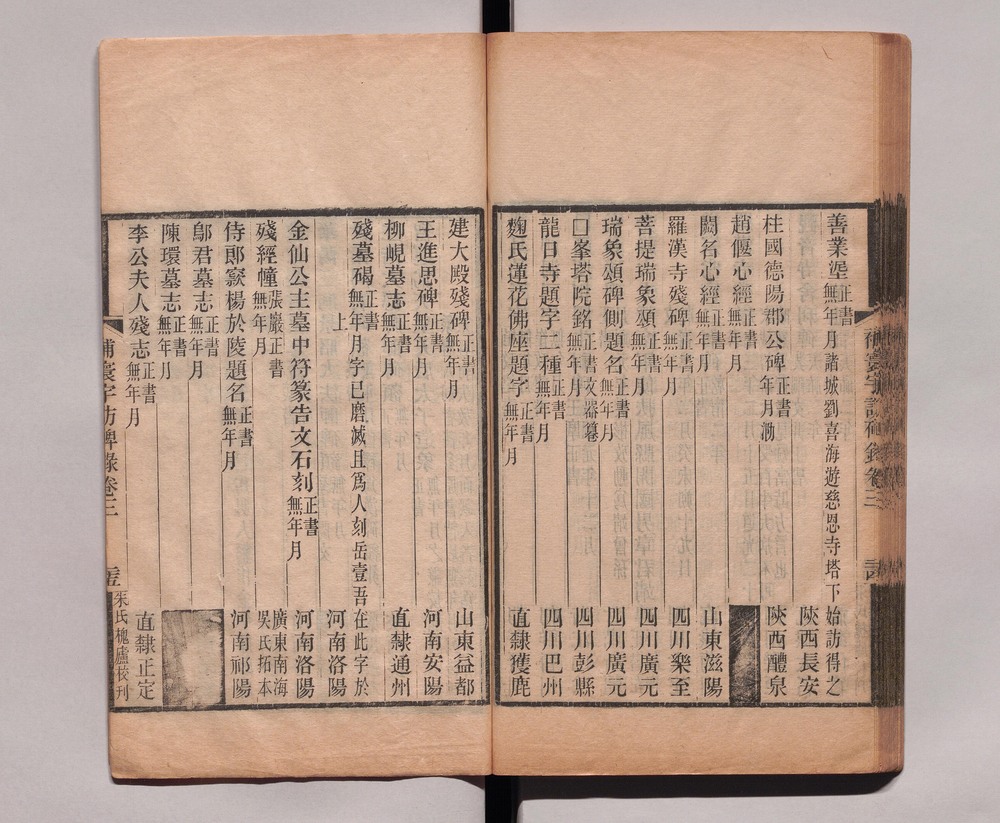 善業埿正書無年月諸城劉喜海遊慈恩寺塔下始訪得之
陝西長安
柱國德陽郡公碑正書年月泐 陝西醴泉
趙偃心經正書無年月
闕名心經正書無年月 山東滋陽
羅漢寺殘碑正書無年月 四川樂至
菩提瑞象頌正書無年月 四川廣元
瑞象頌碑側題名正書無年月 四川廣元
囗峯塔院銘正書文器篹無年月 四川彭縣
龍日寺題字二種正書無年月 四川巴州
麹氏蓮花佛座題字正書無年月 直隸獲鹿
建大殿殘碑正書無年月 山東益都
王進思碑正書無年月 河南安陽
柳峴墓志正書無年月 直隸通州
殘墓碣正書無年月字已磨滅且爲人刻岳壹吾在此字於
上 河南洛陽
金仙公主墓中符篆告文石刻正書無年月 河南洛陽
殘經幢張巖正書無年月 廣東南海吳氏拓本
侍郎窾楊於陵題名正書無年月 河南祁陽
鄔君墓志正書無年月
陳環墓志正書無年月
李公夫人殘志正書無年月 直隸正定
補寰宇訪碑錄卷三
朱氏槐廬校刊